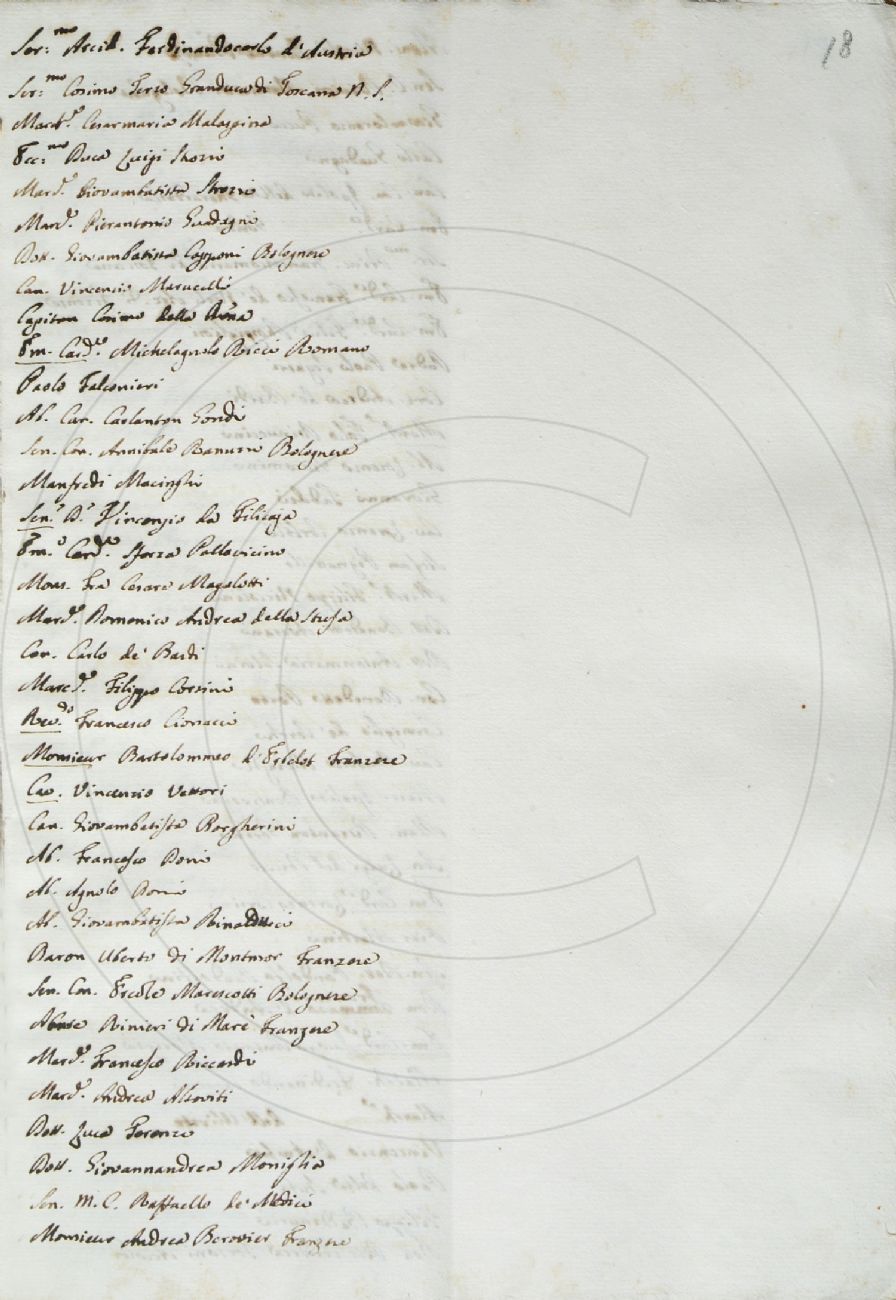 18
Ser:mo Arcid. Ferdinandocarlo d'Austria
Ser:mo Cosimo Terzo Granduca di Toscana N. S.
March.e Cesarmaria Malaspina
Ecc:mo Duca Luigi Strozzi
March.e Giovambatista Strozzi
March.e Pierantonio Guadagni
Dott. Giovambatista Capponi Bolognese
Can. Vincenzio Marucelli
Capitan Cosimo della Rena
Em. Card.e Michelagnolo Ricci Romano
Paolo Falconieri
Ab. Can. Carlanton Gondi
Sen. Con. Annibale Ranuzzi Bolognese
Manfredi Macinghi
Sen.r D.r Vincenzio da Filicaja
Em.o Card.e Sforza Pallavicino
Mons. Fra Cesare Magalotti
March.e Domenico Andrea della Stufa
Con. Carlo de' Bardi
March.e Filippo Corsini
Rev.do Francesco Cionacci
Monsieur Bartolommeo d'Erbelot Franzese
Cav. Vincenzio Vettori
Can. Giovambatista Borgherini
Ab. Francesco Doni
Ab. Agnolo Doni
Ab. Giovambatista Rinalducci
Baron Uberto di Montmor Franzese
Sen. Con. Ercole Marescotti Bolognese
Abate Rinieri di Marè Franzese
March.e Francesco Riccardi
March.e Andrea Altoviti
Dott. Luca Terenzi
Dott. Giovannandrea Moniglia
Sen. M. C. Raffaello de' Medici
Monsieur Andrea Berovier Franzese